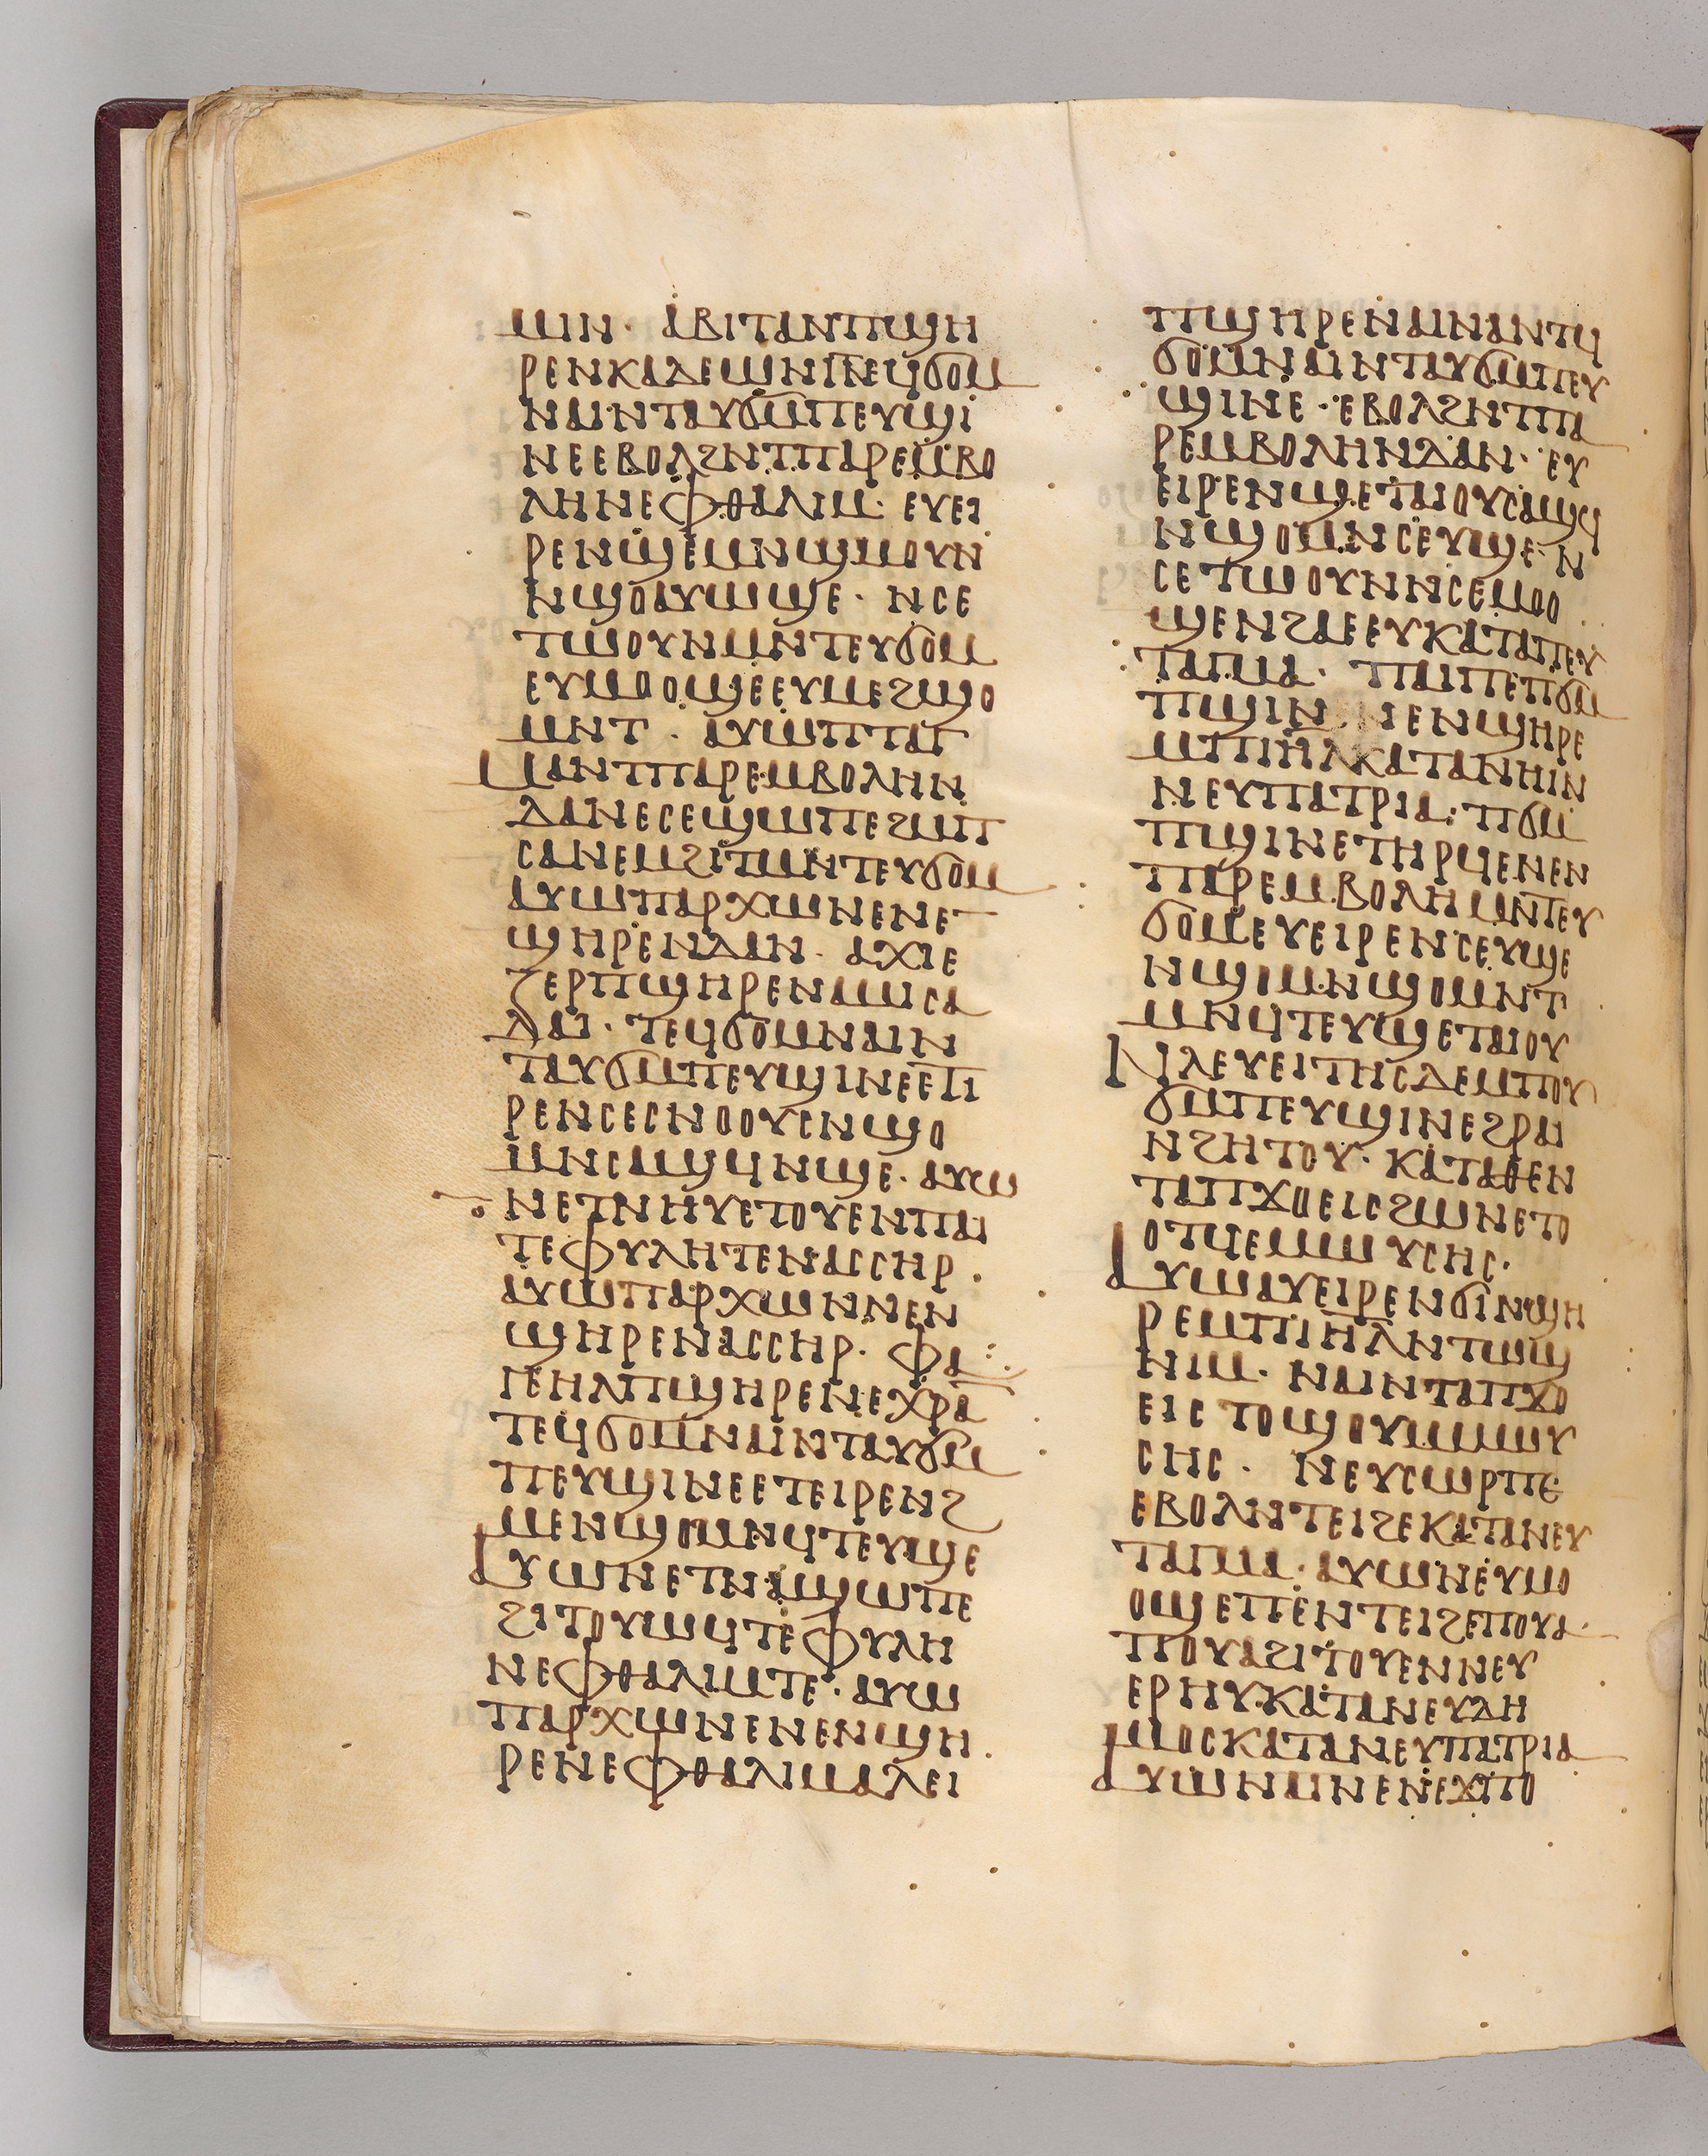 ⲙⲓⲛ · ⲁⲃⲓⲇⲁⲛⲡϣⲏ
ⲣⲉⲛⲕⲁⲇⲉⲱⲛⲓ ⲧⲉϥϭⲟⲙ
ⲛⲁⲓⲛⲧⲁⲩϭⲙⲡⲉⲩϣⲓ
ⲛⲉⲉⲃⲟⲗϩⲛⲧⲡⲁⲣⲉⲙⲃⲟ
ⲗⲏⲛⲉⲫⲑⲁⲗⲓⲙ · ⲉⲩⲉⲓ
ⲣⲉⲛϣⲉⲙⲛϣⲙⲟⲩⲛ
ⲛϣⲟⲁⲩⲱϣⲉ · ⲛⲥⲉ
ⲧⲱⲟⲩⲛⲙⲛⲧⲉⲩϭⲟⲙ
ⲉⲩⲙⲟⲟϣⲉⲉⲩⲙⲉϩϣⲟ
ⲙⲛⲧ · ⲁⲩⲱⲡⲧⲁⲅ
ⲙⲁⲛⲧⲡⲁⲣⲉⲙⲃⲟⲗⲏⲛ
ⲇⲁⲛⲉⲥⲉϣⲱⲡⲉϩⲙⲡ
ⲥⲁⲛⲉⲙϩⲓⲧⲙⲛⲧⲉⲩϭⲟⲙ
ⲁⲩⲱⲡⲁⲣⲭⲱⲛⲉⲛⲉ
ϣⲏⲣⲉⲛⲇⲁⲛ · ⲁⲭⲓⲉ
ⲍⲉⲣⲡϣⲏⲣⲉⲛⲁⲙⲓⲥⲁ
ⲇⲁⲓ · ⲧⲉϥϭⲟⲙⲛⲁⲓⲛ
ⲧⲁⲩϭⲙⲡⲉⲩϣⲓⲛⲉⲉⲧⲓ
ⲣⲉⲛⲥⲉⲥⲛⲟⲟⲩⲥⲛϣⲟ
ⲙⲛⲥⲁϣϥⲛϣⲉ · ⲁⲩⲱ
ⲛⲉⲧⲛⲏⲩⲉⲧⲟⲩⲉⲛⲡⲁⲓ
ⲧⲉⲫⲩⲗⲏⲧⲉⲛⲁⲥⲥⲏⲣ ·
ⲁⲩⲱⲡⲁⲣⲭⲱⲛⲛⲉⲛ
ϣⲏⲣⲉⲛⲁⲥⲥⲏⲣ · ⲫⲁ
ⲅⲉⲏⲗⲡϣⲏⲣⲉⲛⲉⲭⲣⲁ
ⲧⲉϥϭⲟⲙⲛⲁⲓⲛⲧⲁⲩϭⲙ
ⲡⲉⲩϣⲓⲛⲉⲉⲧⲉⲓⲣⲉⲛϩ
ⲙⲉⲛϣⲟⲙⲛϥⲧⲉⲩϣⲉ
ⲁⲩⲱⲛⲉⲧⲛⲁϣⲱⲡⲉ
ϩⲓⲧⲟⲩⲱϥⲧⲉⲫⲩⲗⲏ
ⲛⲉⲫⲑⲁⲗⲓⲙⲧⲉ · ⲁⲩⲱ
ⲡⲁⲣⲭⲱⲛⲉⲛⲉⲛϣⲏ
ⲣⲉⲛⲉⲫⲑⲁⲗⲓⲙⲁⲗⲉⲓ
ⲡϣⲏⲣⲉⲛⲁⲓⲛⲁⲛⲧϥ
ϭⲟⲙⲛⲁⲓⲛⲧⲁⲩϭⲙⲡⲉⲩ
ϣⲓⲛⲉ · ⲉⲃⲟⲗϩⲛⲧⲡⲁ
ⲣⲉⲙⲃⲟⲗⲏⲛⲇⲁⲛ · ⲉⲩ
ⲉⲓⲣⲉⲛϣⲉⲧⲁⲓⲟⲩⲥⲁϣϥ
ⲛϣⲟⲙⲛⲥⲉⲩϣⲉ · ⲛ
ⲥⲉⲧⲱⲟⲩⲛⲛⲥⲉⲙⲟⲟ
ϣⲉⲛϩⲁⲉⲉⲩⲕⲁⲧⲁⲡⲉⲩ
ⲧⲁⲅⲙⲁ · ⲡⲁⲓⲡⲉⲡϭⲙ
ⲡϣⲓⲛ ⲛⲉⲛϣⲏⲣⲉ
ⲙⲡⲓⲏⲗⲕⲁⲧⲁⲛⲏⲓⲛ
ⲛⲉⲩⲡⲁⲧⲣⲓⲁ · ⲡϭⲙ
ⲡϣⲓⲛⲉⲧⲏⲣϥⲉⲛⲉⲛ
ⲡⲁⲣⲉⲙⲃⲟⲗⲏⲙⲛⲧⲉⲩ
ϭⲟⲙⲉⲩⲉⲓⲣⲉⲛⲥⲉⲩϣⲉ
ⲛϣⲟⲙⲛϣⲟⲙⲛⲧ
ⲙⲛϥⲧⲉⲩϣⲉⲧⲁⲓⲟⲩ
ⲛⲗⲉⲩⲉⲓⲧⲏⲥⲇⲉⲙⲡⲟⲩ
ϭⲙⲡⲉⲩϣⲓⲛⲉϩⲣⲁⲓ
ⲛϩⲏⲧⲟⲩ · ⲕⲁⲧⲁⲑⲉⲛ
ⲧⲁⲡϫⲟⲉⲓⲥϩⲱⲛⲉⲧⲟ
ⲟⲧϥⲉⲙⲙⲱⲩⲥⲏⲥ ·
ⲁⲩⲱⲁⲩⲉⲓⲣⲉⲛϭⲓⲛϣⲏ
ⲣⲉⲙⲡⲓⲏⲗⲛⲧⲱϣ
ⲛⲓⲙ · ⲛⲁⲓⲛⲧⲁⲡϫⲟ
ⲉⲓⲥ ⲧⲟϣⲟⲩⲙⲙⲱⲩ
ⲥⲏⲥ · ⲛⲉⲩⲥⲱⲣⲡⲉ
ⲉⲃⲟⲗⲛⲧⲉⲓϩⲉⲕⲁⲧⲁⲛⲉⲩ
ⲧⲁⲅⲙⲁ · ⲁⲩⲱⲛⲉⲩⲙⲟ
ⲟϣⲉⲡⲉⲛⲧⲉⲓϩⲉⲡⲟⲩⲁ
ⲡⲟⲩⲁϩⲓⲧⲟⲩⲉⲛⲛⲉⲩ
ⲉⲣⲏⲩⲕⲁⲧⲁⲛⲉⲩⲇⲏ
ⲙⲟⲥⲕⲁⲧⲁⲛⲉⲩⲡⲁⲧⲣⲓⲁ
ⲁⲩⲱⲛⲁⲓⲛⲉⲛⲉϫⲡⲟ